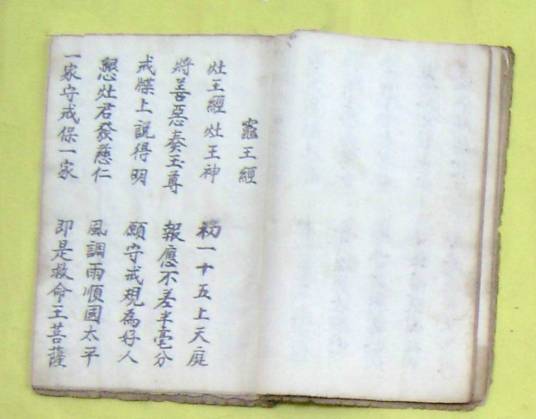 竈王經
灶王經灶王神 初一十五上天庭
将善惡奏玉尊 報應不差半毫分
戒牒上說得明 願守戒規為好人
懇灶君發慈仁 風調雨順國太平
一家守戒保一家 即是救命王菩薩